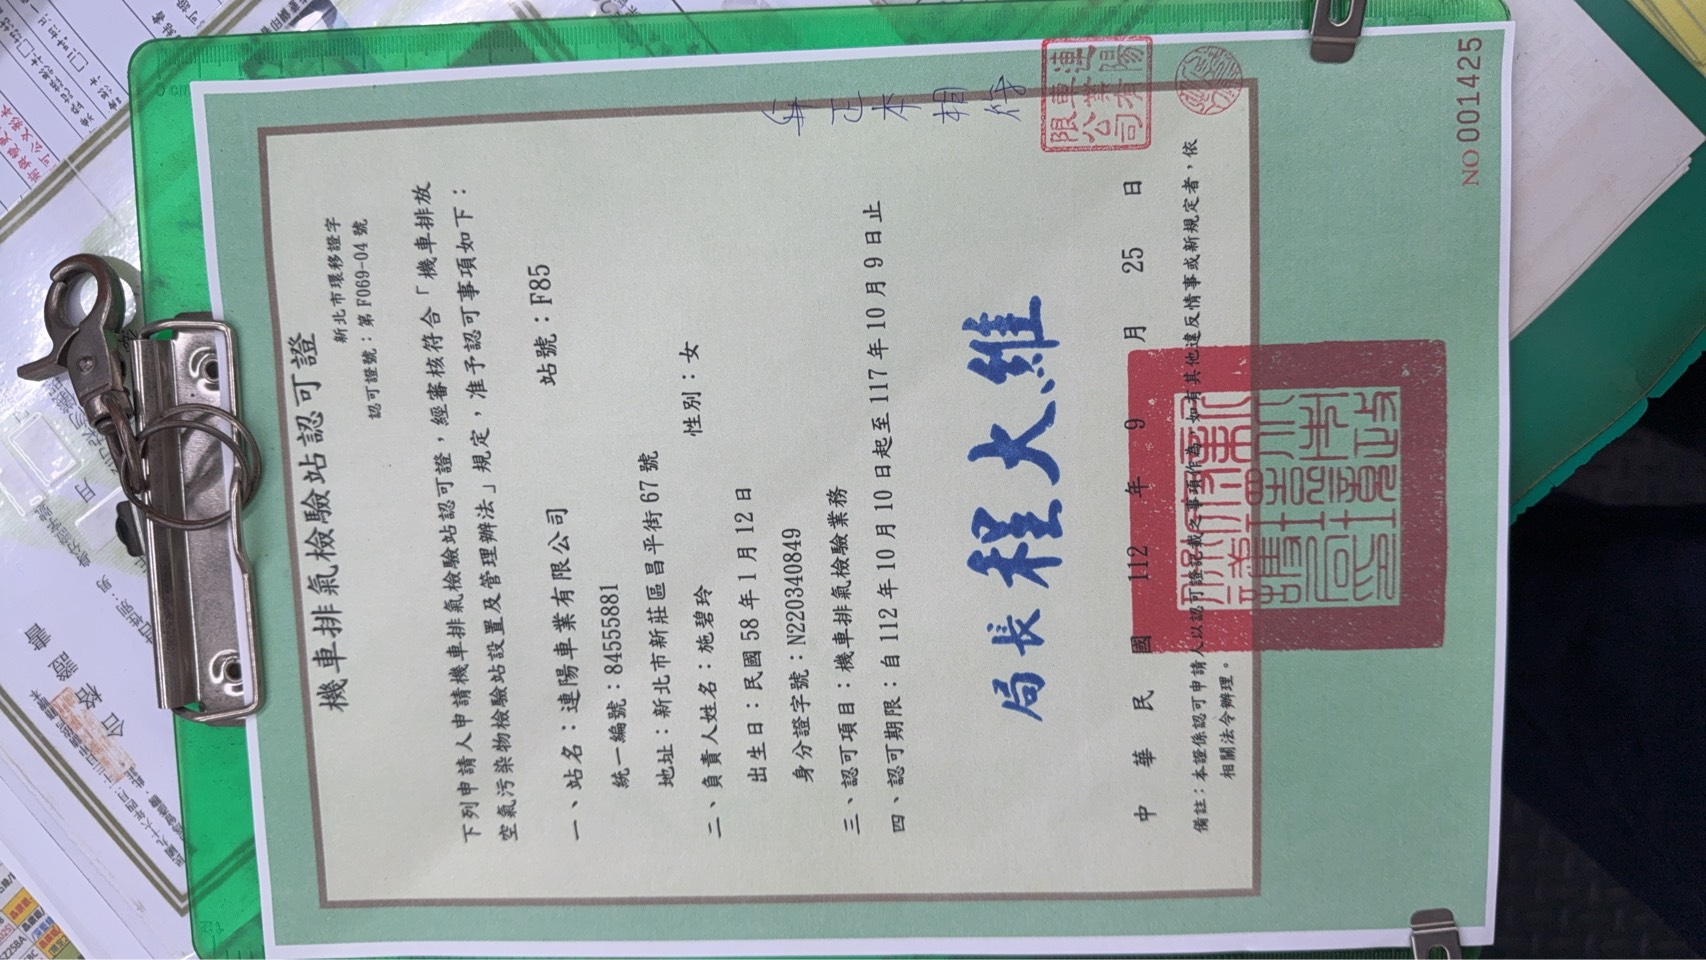 機車排氣檢驗站認可證
新北市環移證字
認可證號：第F069-04號
下列申請人申請機車排氣檢驗站認可證，經審核符合「機車排放
空氣污染物檢驗站設置及管理辦法」規定，准予認可事項如下：
一、站名：連陽車業有限公司 站號：F85
統一編號：84555881
地址：新北市新莊區昌平街67號
二、負責人姓名：施碧玲 性別：女
出生日：民國58年1月12日
身分證字號：N220340849
三、認可項目：機車排氣檢驗業務
四、認可期限：自112年10月10日起至117年10月9日止
局長程大維
與正本相符
連陽車業有限公司
中華民國112年9月25日
備註：本證係認可申請人以認可證記載之事項作為，如有其他違反情事或新規定者，依
相關法令辦理。
NO 001425
合格證書